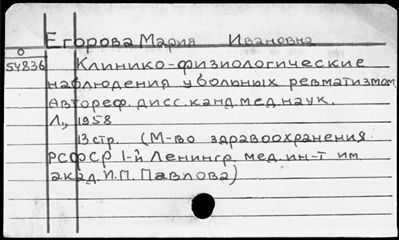 Егорова Мария Ивановна
О
54836 Клинико-физиологические
наблюдения у больных ревматизмом
Автореф. дисс. канд. мед. наук.
Л., 1958
13 стр. (М-во здравоохранения
РСФСР 1-й Ленингр. мед. ин-т им.
акад. И.П. Павлова)